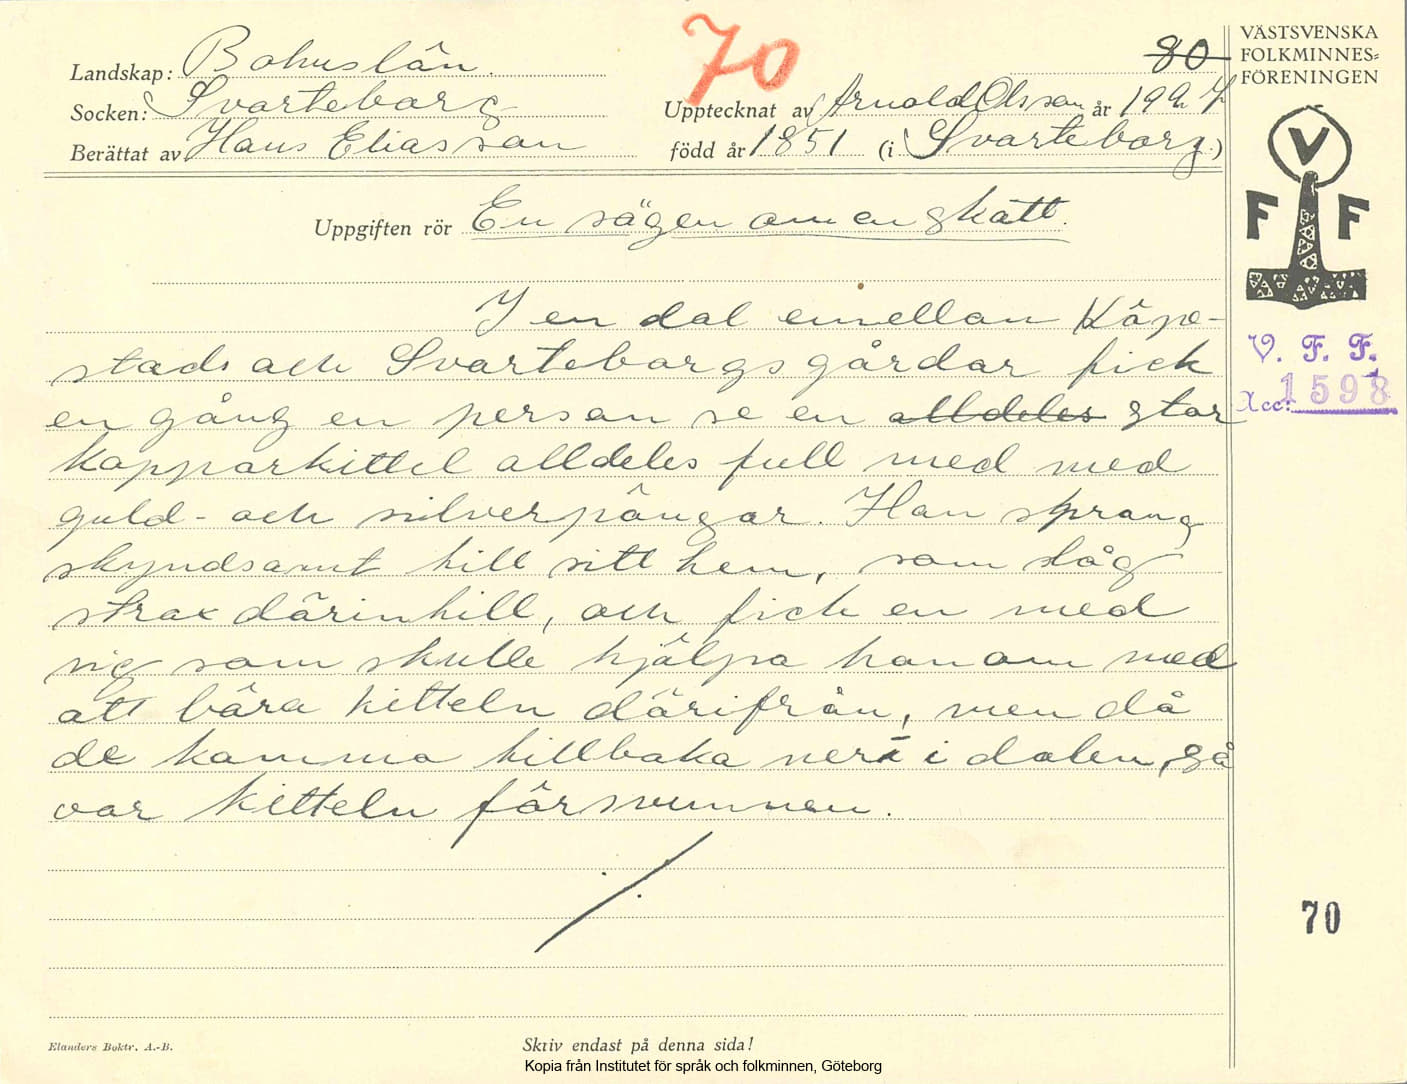 Landskap: Bohuslän.
Socken: Svarteborg
Berättat av Hans Eliasson
70
80
Upptecknat av Arnold Olsson år 1927
född år 1851 (i Svarteborg)
VÄSTSVENSKA
FOLKMINNES=
FÖRENINGEN
V
F F
Uppgiften rör En sägen om en skatt.
I en dal emellan Kåpe-
stads och Svarteborgs gårdar fick
en gång en person se en alldeles stor
kopparkittel alldeles full med med
guld- och silverpängar. Han sprang
skyndsamt till sitt hem, som låg
strax därintill, och fick en med
sig som skulle hjälpa honom med
att bära kitteln därifrån, men då
de komma tillbaka ner i dalen, så
var kitteln försvunnen.
V. F. F.
Acc: 1598
70
Elanders Boktr. A.-B.
Skriv endast på denna sida!
Kopia från Institutet för språk och folkminnen, Göteborg